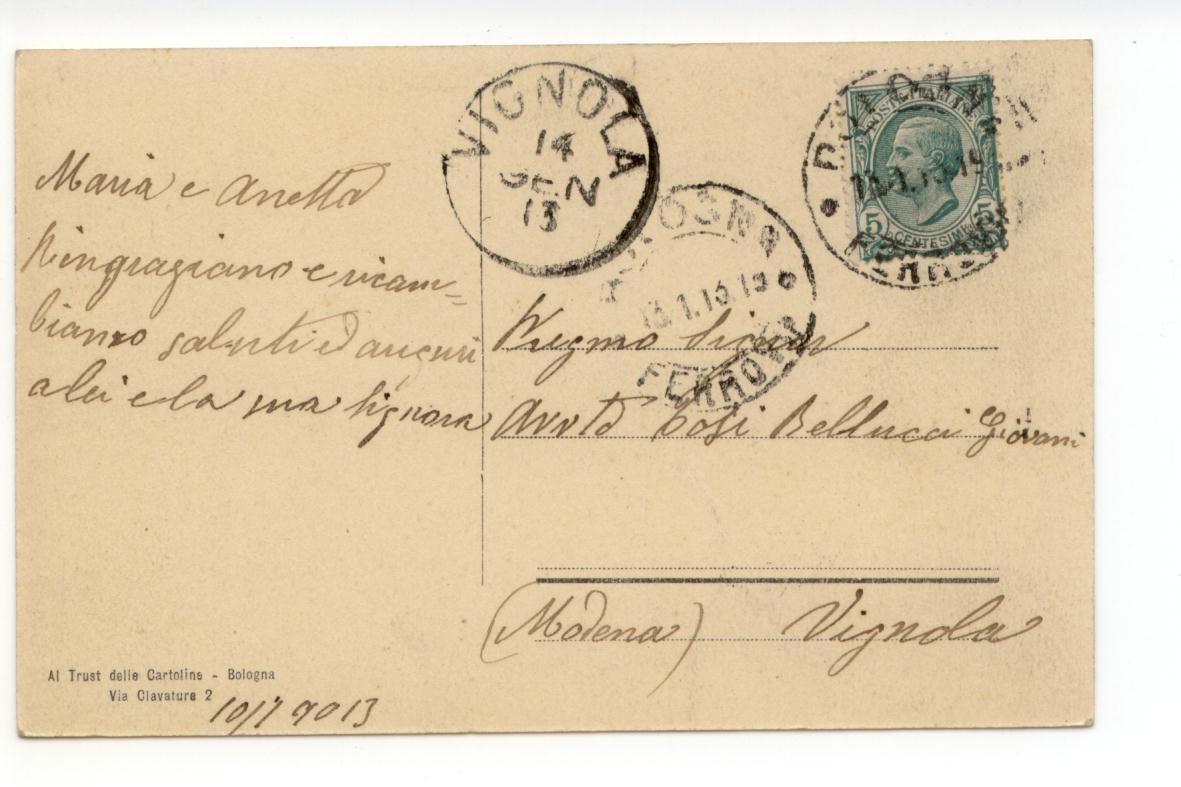 Maria e Anetta
Ringraziano e ricam=
biano saluti ed auguri
a lei e la sua Signora
VIGNOLA
14
GEN
13
BOLOGNA
13.1.13.19
FERROVIA
BOLOGNA
13.1.13.19
FERROVIA
POSTE ITALIANE
5 CENTESIMI 5
Pregmo Signor
Avvto Tosi Bellucci Giovani
(Modena) Vignola
Al Trust delle Cartoline - Bologna
Via Clavature 2